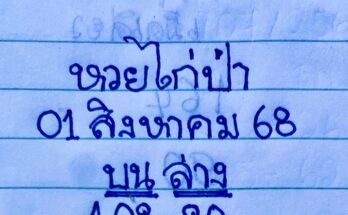 หวยไก่ป่า
01 สิงหาคม 68
บน ล่าง